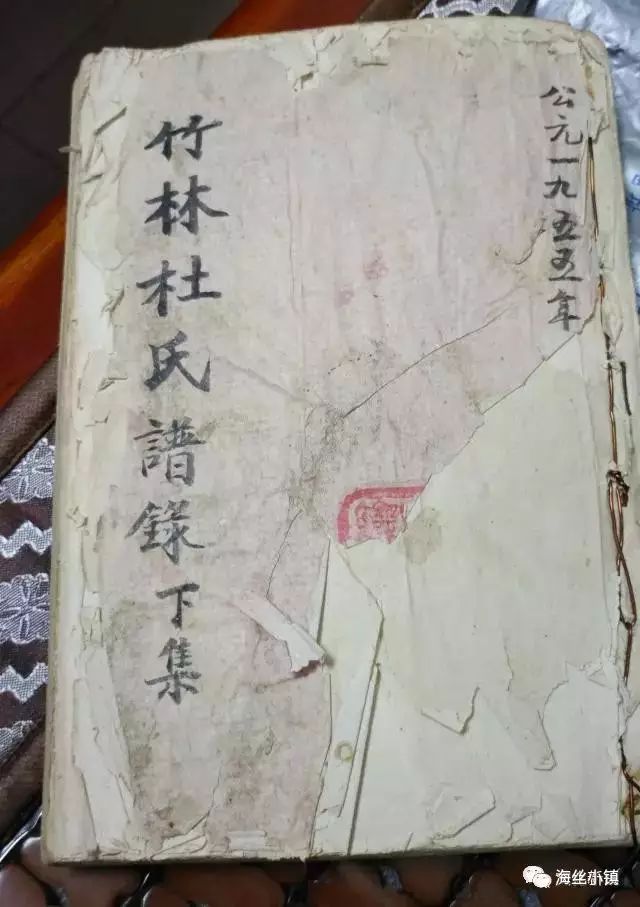 公元一九五五年
竹林杜氏譜錄下集
海丝朴镇